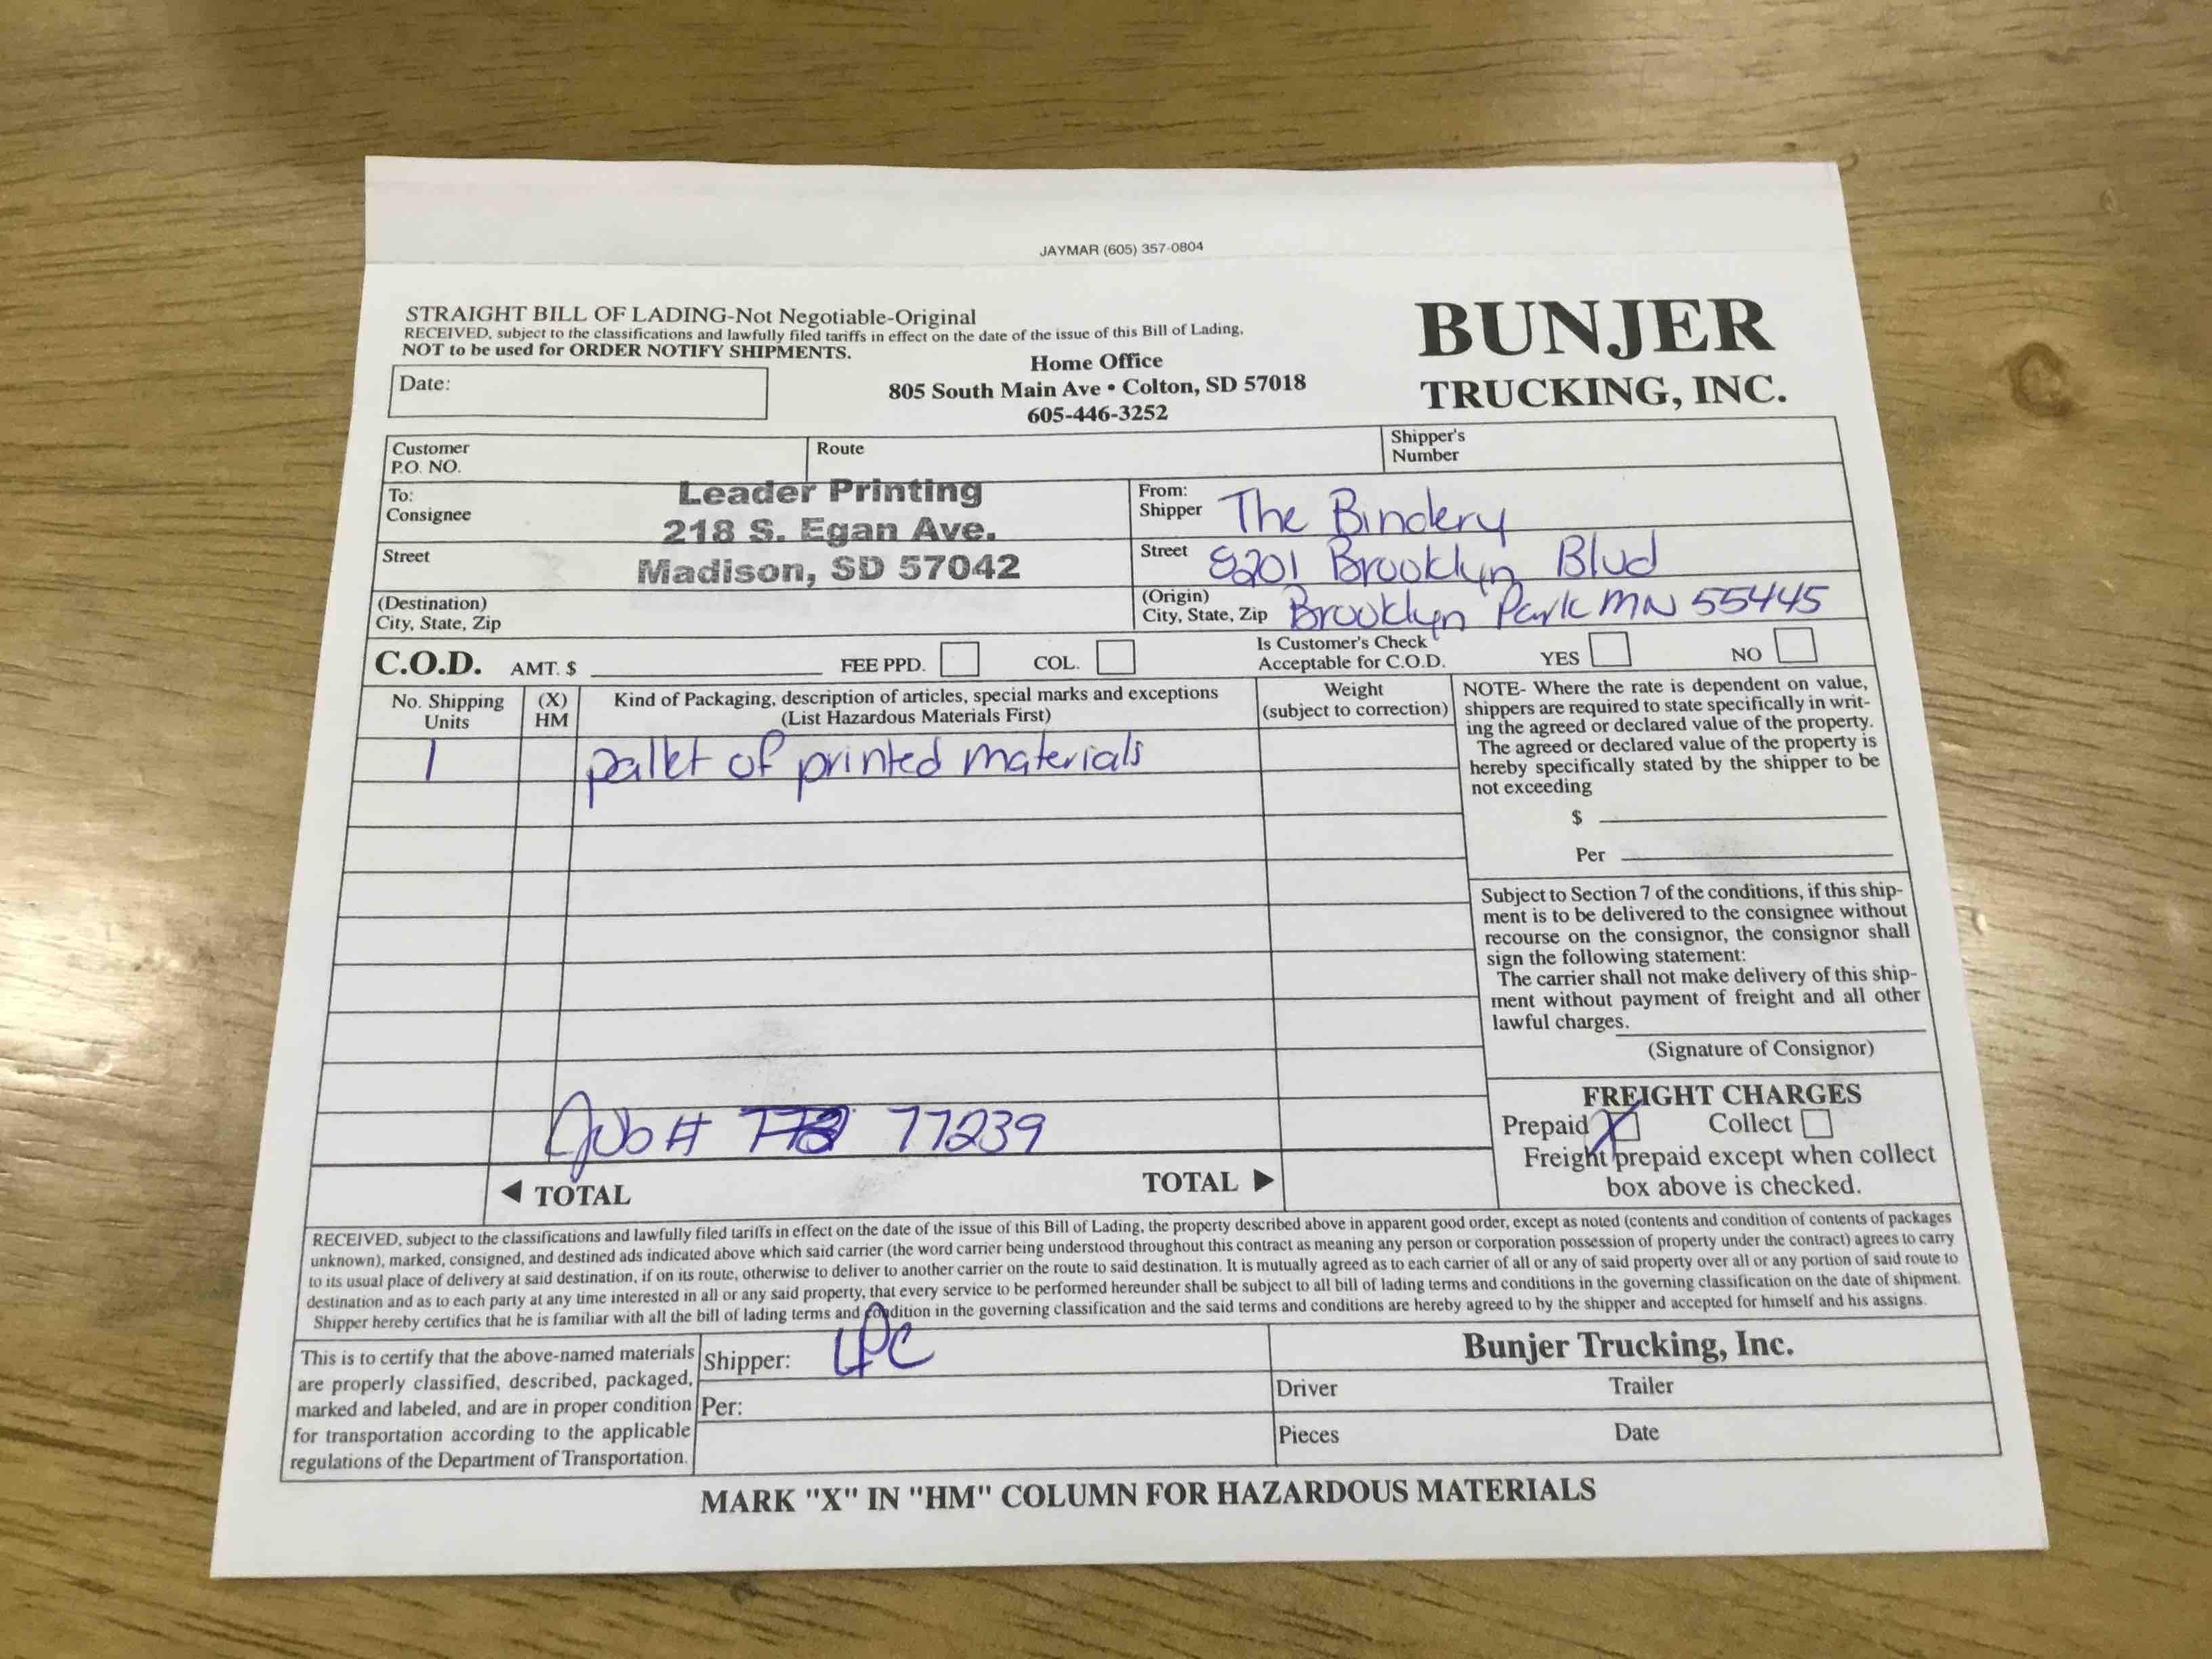 JAYMAR (605) 357-0804
STRAIGHT BILL OF LADING-Not Negotiable-Original
RECEIVED, subject to the classifications and lawfully filed tariffs in effect on the date of the issue of this Bill of Lading,
NOT to be used for ORDER NOTIFY SHIPMENTS.
Date:
Home Office
805 South Main Ave • Colton, SD 57018
605-446-3252
BUNJER
TRUCKING, INC.
Customer
P.O. NO.
Route
Shipper's
Number
To:
Consignee
Leader Printing
218 S. Egan Ave.
Street
Madison, SD 57042
(Destination)
City, State, Zip
From:
Shipper The Bindery
Street 8201 Brooklyn Blvd
(Origin)
City, State, Zip Brooklyn Park MN 55445
C.O.D. AMT. $ FEE PPD. COL.
Is Customer's Check
Acceptable for C.O.D. YES NO
No. Shipping
Units
(X)
HM
Kind of Packaging, description of articles, special marks and exceptions
(List Hazardous Materials First)
Weight
(subject to correction)
1 pallet of printed materials
Job # 77239
TOTAL TOTAL
NOTE- Where the rate is dependent on value,
shippers are required to state specifically in writ-
ing the agreed or declared value of the property.
The agreed or declared value of the property is
hereby specifically stated by the shipper to be
not exceeding
$
Per
Subject to Section 7 of the conditions, if this ship-
ment is to be delivered to the consignee without
recourse on the consignor, the consignor shall
sign the following statement:
The carrier shall not make delivery of this ship-
ment without payment of freight and all other
lawful charges.
(Signature of Consignor)
FREIGHT CHARGES
Prepaid X Collect
Freight prepaid except when collect
box above is checked.
RECEIVED, subject to the classifications and lawfully filed tariffs in effect on the date of the issue of this Bill of Lading, the property described above in apparent good order, except as noted (contents and condition of contents of packages
unknown), marked, consigned, and destined ads indicated above which said carrier (the word carrier being understood throughout this contract as meaning any person or corporation possession of property under the contract) agrees to carry
to its usual place of delivery at said destination, if on its route, otherwise to deliver to another carrier on the route to said destination. It is mutually agreed as to each carrier of all or any of said property over all or any portion of said route to
destination and as to each party at any time interested in all or any said property, that every service to be performed hereunder shall be subject to all bill of lading terms and conditions in the governing classification on the date of shipment.
Shipper hereby certifies that he is familiar with all the bill of lading terms and condition in the governing classification and the said terms and conditions are hereby agreed to by the shipper and accepted for himself and his assigns.
This is to certify that the above-named materials
are properly classified, described, packaged,
marked and labeled, and are in proper condition
for transportation according to the applicable
regulations of the Department of Transportation.
Shipper: LPC
Per:
Bunjer Trucking, Inc.
Driver Trailer
Pieces Date
MARK "X" IN "HM" COLUMN FOR HAZARDOUS MATERIALS